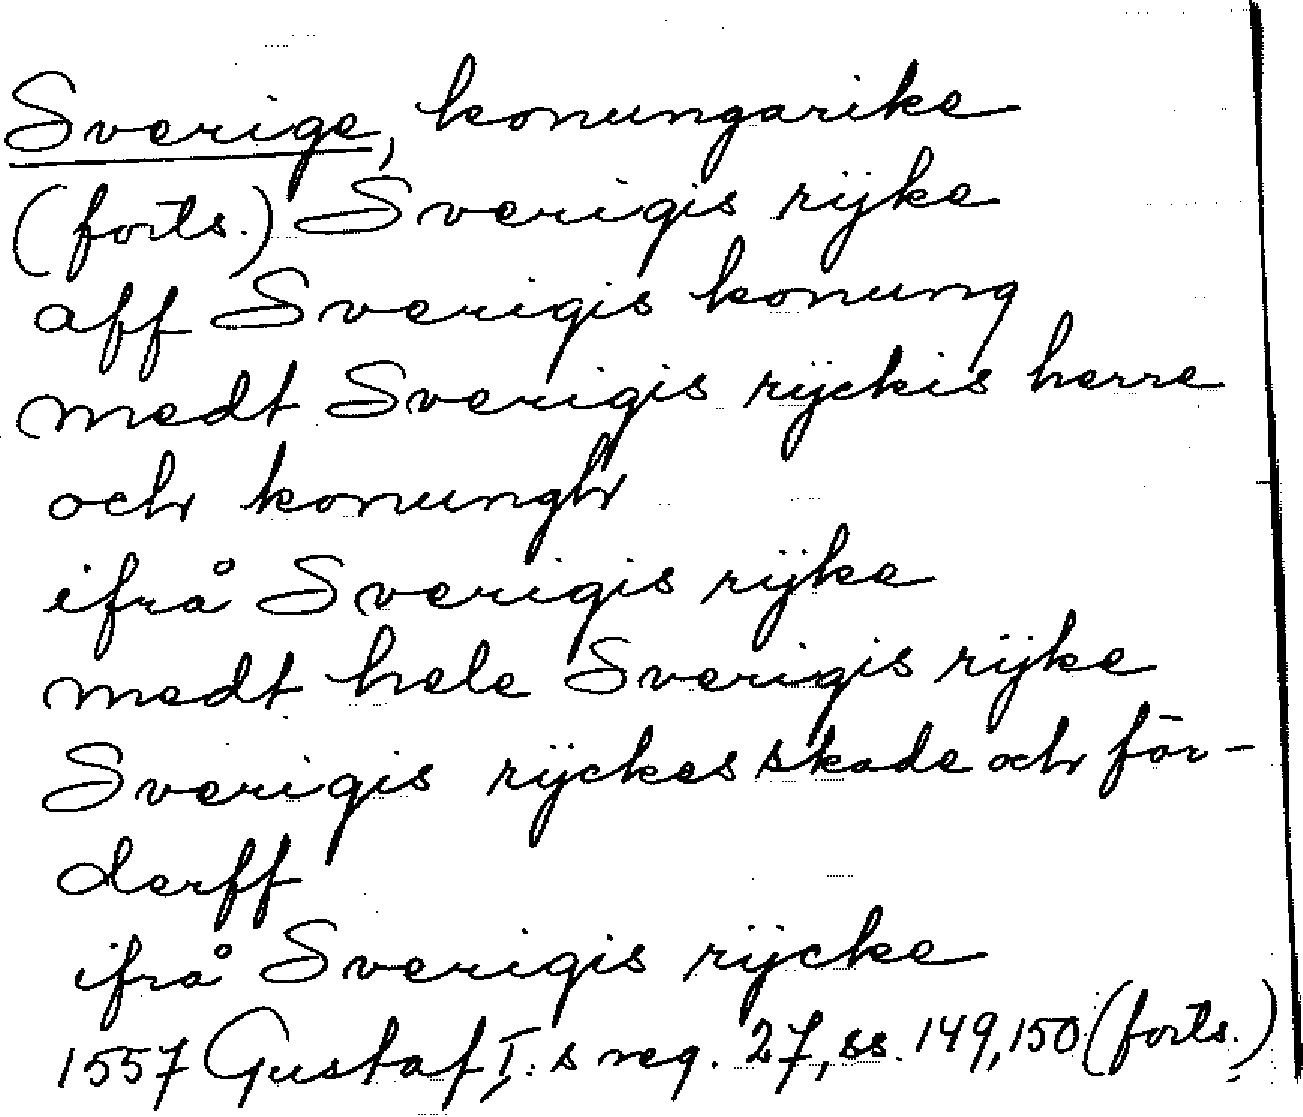 Sverige, konungarike
(forts.) Sverigis rÿke
aff Sverigis konung
medt Sverigis rÿckis herre
och konungh
ifrå Sverigis rÿke
medt hele Sverigis rÿke
Sverigis rÿckes skade och för-
derff
ifrå Sverigis rÿcke
1557 Gustaf I:s reg. 27, ss. 149, 150 (forts.)